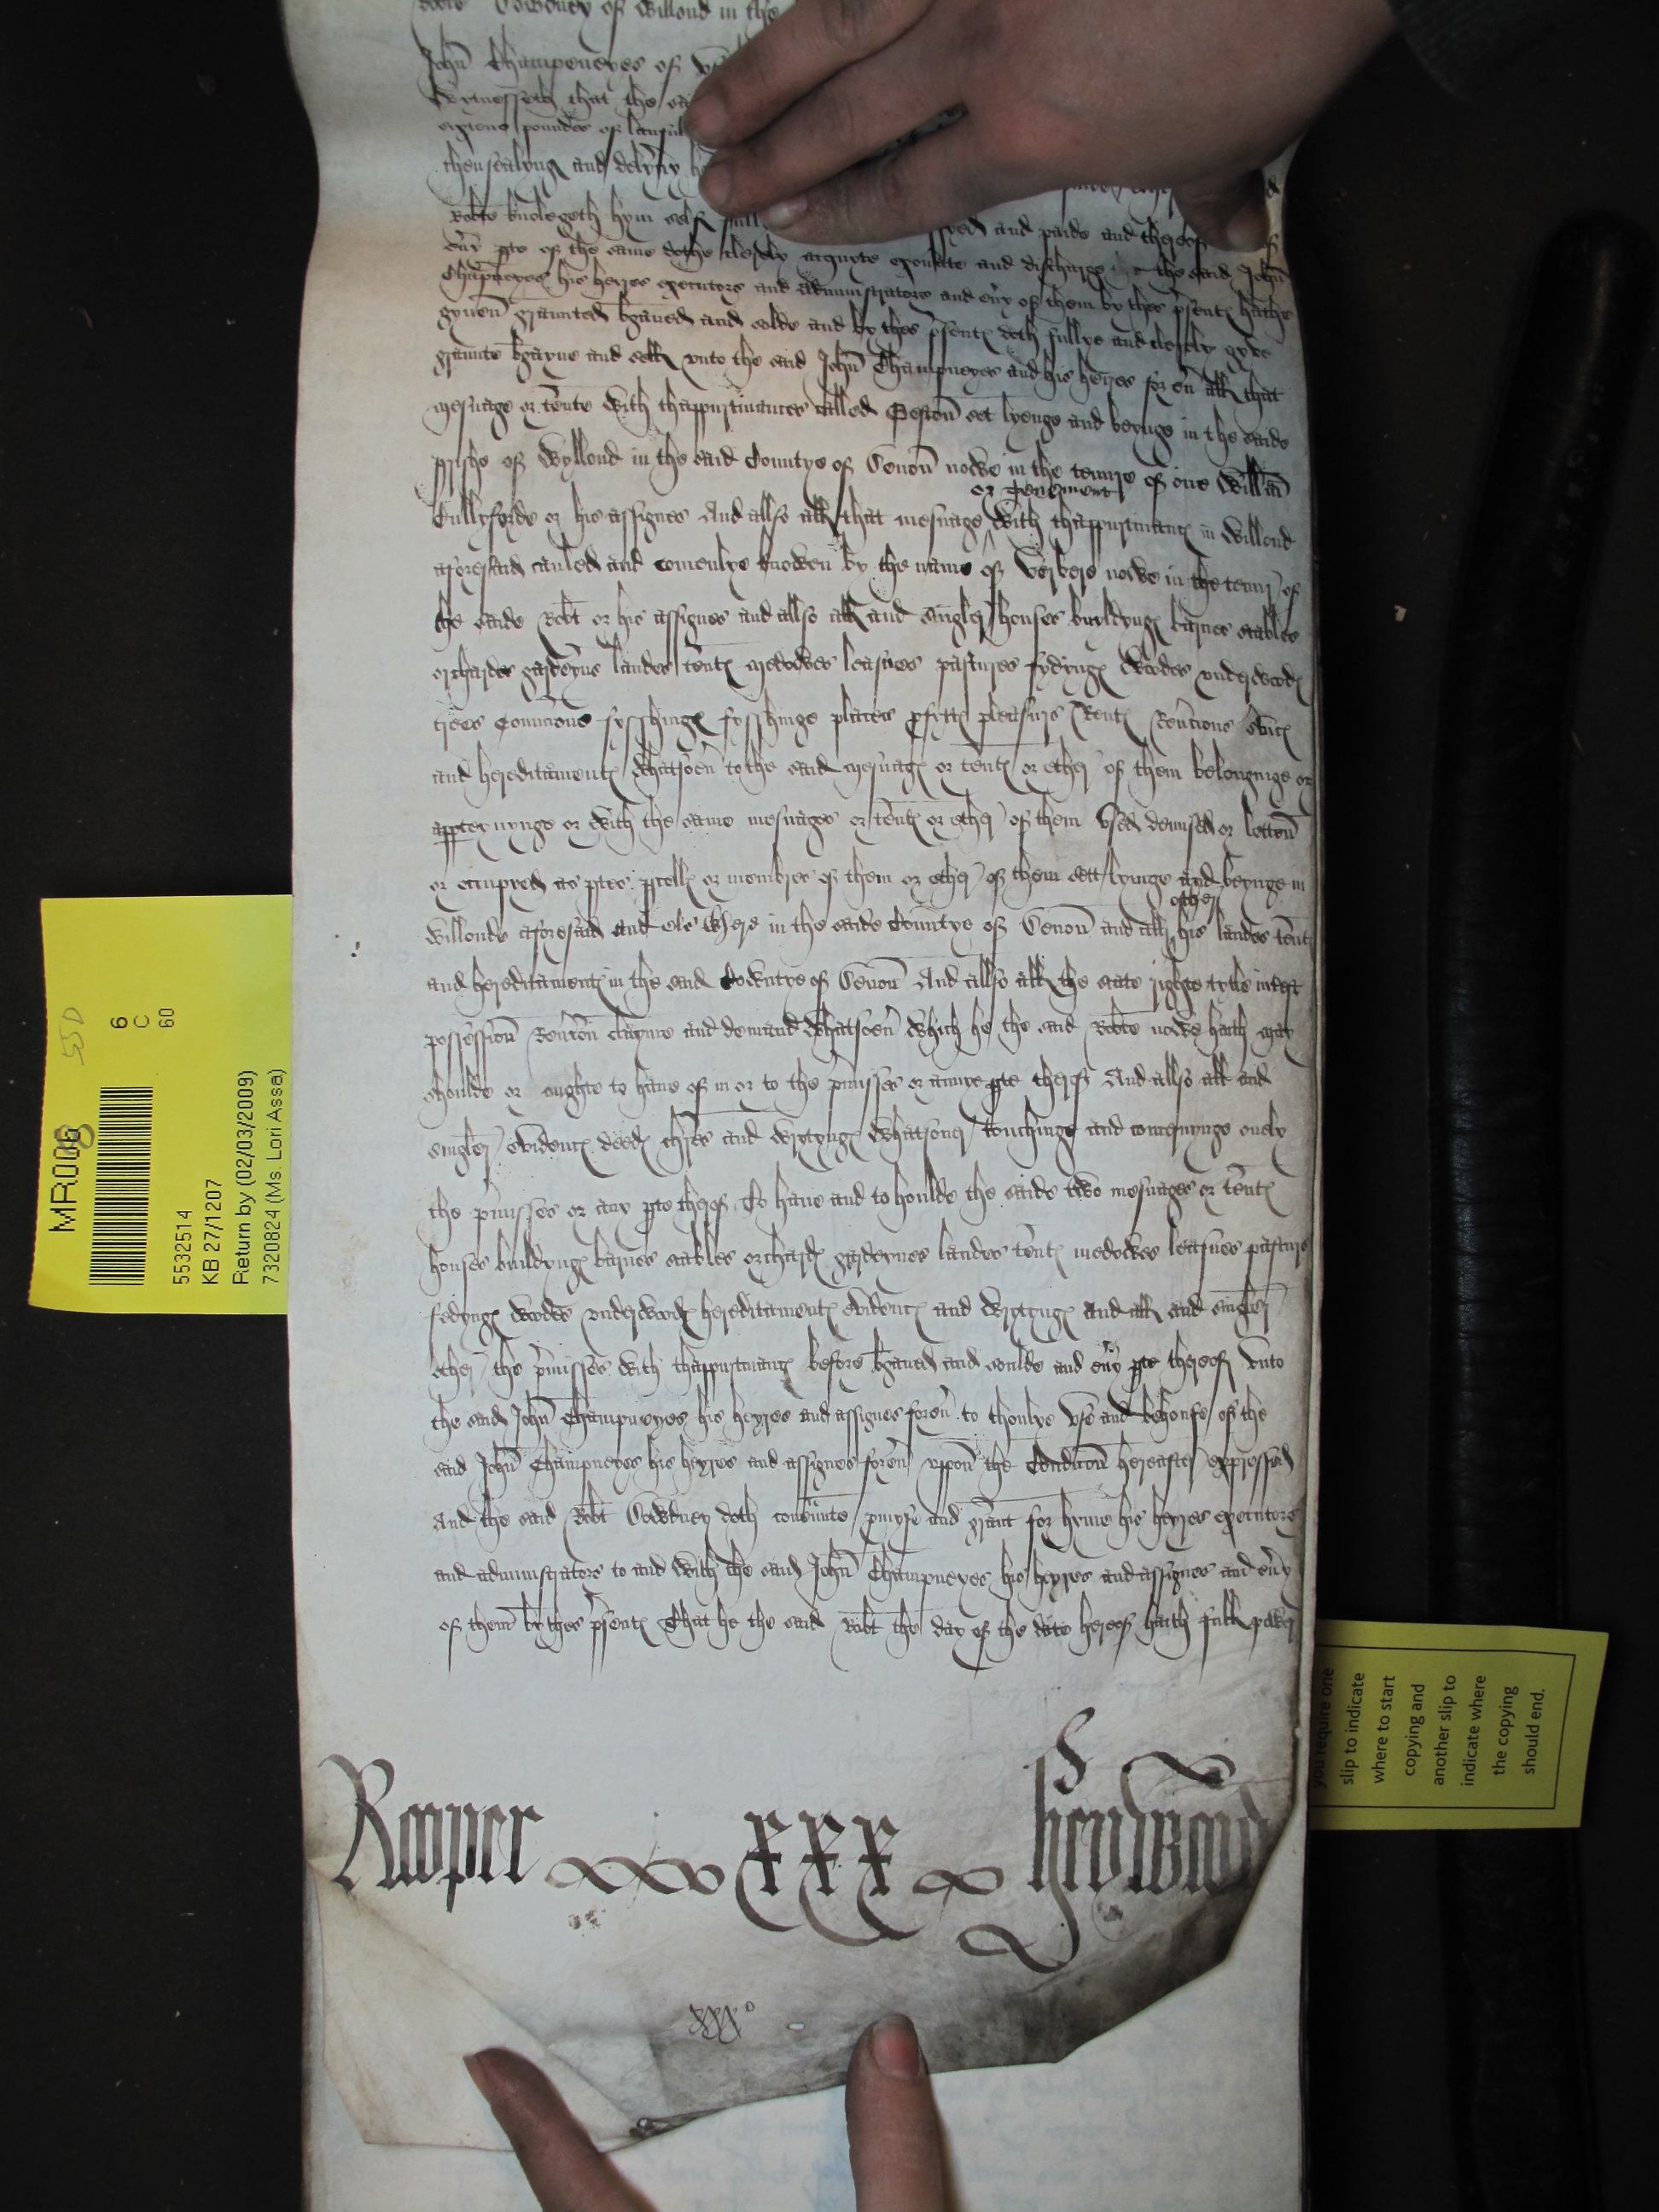 Cowdney of Willond in the
John Champeneyes of
Wytnesseth that the sa
poundes of laufull
thensealyng and delyuy
Robte knolegeth hym self full yed and paide and thereof
eny pte of the same dothe clerely acquyte exonerate and discharge the said John
Champneyes his heyres executors and administrators and eny of them by thes psent hathe
gyuen graunted bganed and solde and by thes psent doth fullye and clerely gyve
graunte bgayne and sell vnto the said John Champneyes and his heyres for eu all that
mesuage or tente with thappurtinances called set lyenge and beynge in the saide
pishe of Wyllond in the said Countye of Deuon nowe in the tenure of one Willm
or tenement
Cullyforde or his assignes And allso all that mesuage with thappurtinant in Willond
aforesaid called and comenlye knowen by the name of nowe in the tenur of
the saide Robt or his assignes and allso all and singler houses buyldyng barnes stables
orchardes gardeyns landes tent medowes leasues pastures fydyng Woodes underwood
trees Comons fysshing fysshinge places pfitt pleasurs Rent Reucions suic
and hereditament Whatsoeu to the said mesuag or tent or ether of them belonginge or
appteynynge or with the same mesuages or tent or ether of them vsed demised or letten
or occupyed as ptes pcell or membres of them or ether of them sett lyinge and beynge in
other
Willonde aforesaid and els where in the saide Countye of Deuon and all his landes tent
and hereditament in the said Cowntye of Deuon And allso all the state righte tytle intest
possession Reucon clayme and demand Whatsoeu which he the said Robte nowe hath may
shoulde or oughte to haue of in or to the pmisses or annye pte therof And allso all and
singler evidenc deed chres and wrytyng Whatsoeu touchinge and concernynge onely
the pmisses or any pte therof To haue and to houlde the saide two mesuages or tent
houses buildyng barnes stables orchard gardeynes landes tent medowes leasues pasture
fedyng woodes underwood hereditament evidenc and wrytyng and all and singler
other the pmisses with thappurtinanc before bganed and soulde and euy pte thereof vnto
the said John Champneyes his heyres and assignes foreu to thonlye vse and behoufe of the
said John Champneyes his heyres and assignes foreu vppon the Condicon hereafter expressed
And the said Robt Cowdney doth couennte pmyse and grant for hyme his heyres executors
and administrators to and with the said John Champneyes his heyres and assignes and euy
of them by thes psent That he the said Robt the day of the date hereof hath full power
Rooper xxx Heywood
xxx°
MR006
8
6
C
60
5532514
KB 27/1207
Return by (02/03/2009)
7320824 (Ms. Lori Assa)
you require one
slip to indicate
where to start
copying and
another slip to
indicate where
the copying
should end.